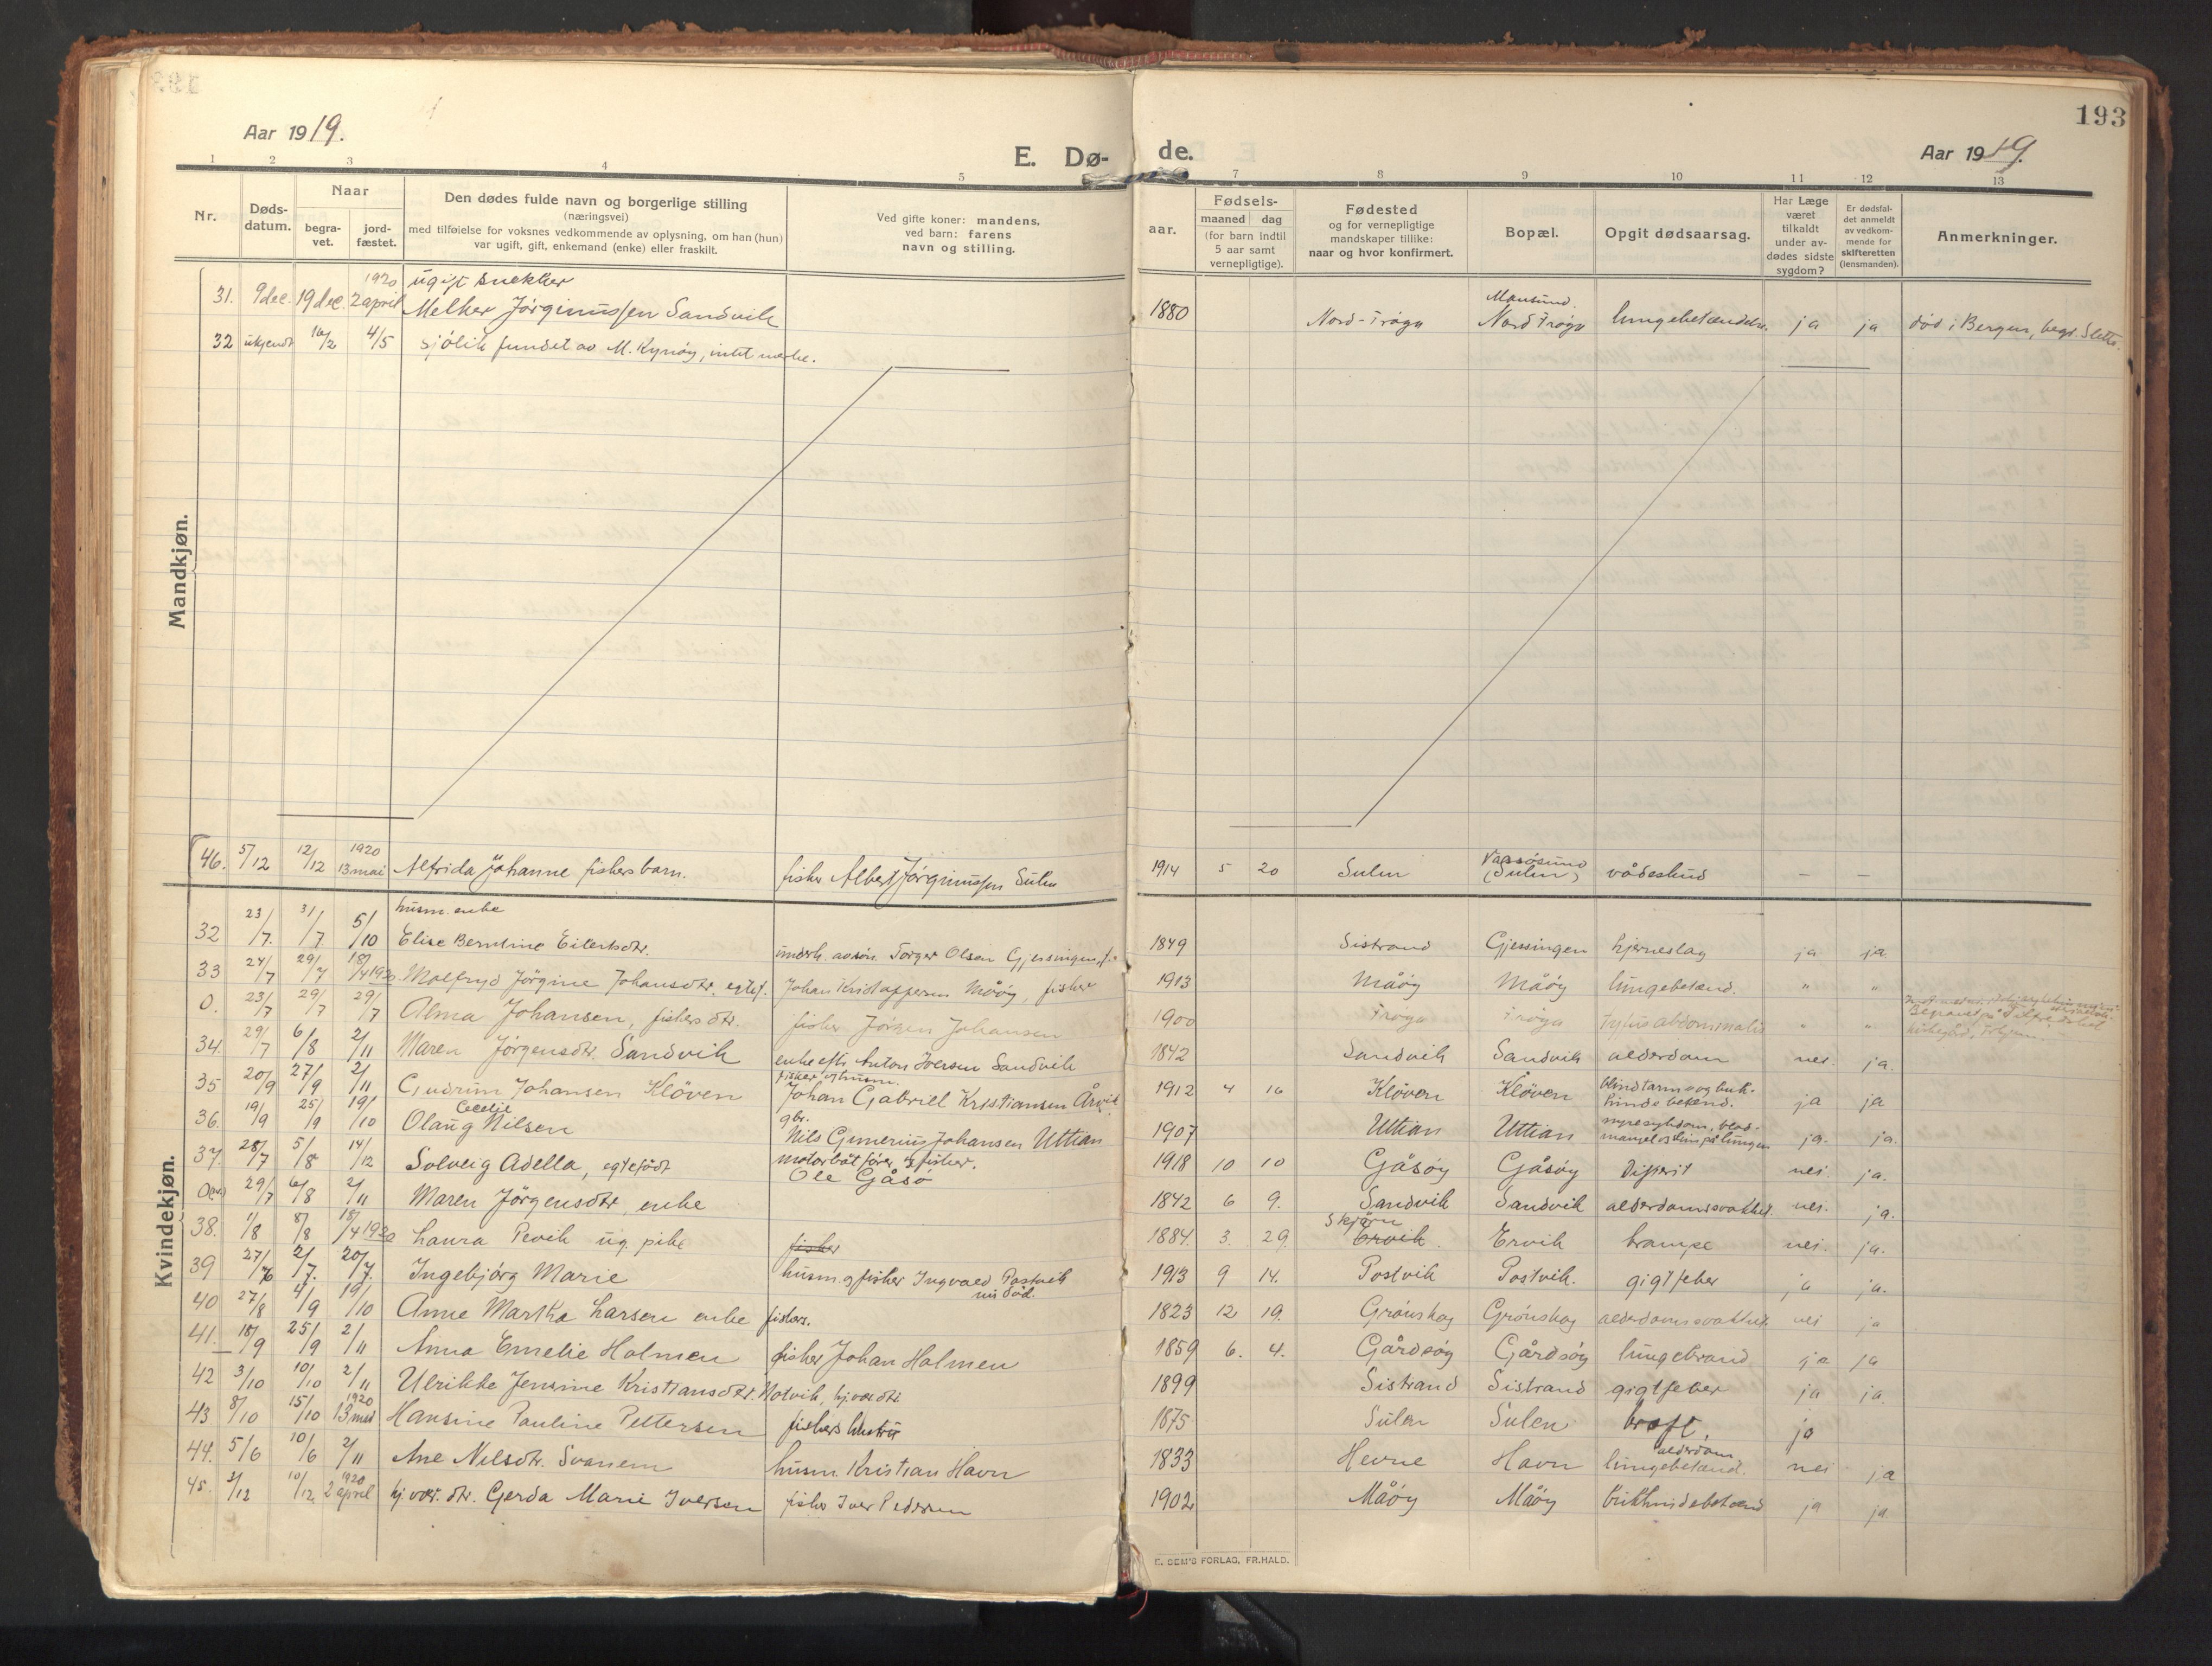 193
Aar 1919.
E. Dø-
de.
Aar 1919.
1 2 3 4 5 7 8 9 10 11 12 13
Nr.
Døds-
datum.
Naar
begra-
vet.
jord-
fæstet.
Den dødes fulde navn og borgerlige stilling
(næringsvei)
med tilføielse for voksnes vedkommende av oplysning, om han (hun)
var ugift, gift, enkemand (enke) eller fraskilt.
Ved gifte koner: mandens,
ved barn: farens
navn og stilling.
aar.
Fødsels-
maaned dag
(for barn indtil
5 aar samt
vernepligtige).
Fødested
og for vernepligtige
mandskaper tillike:
naar og hvor konfirmert.
Bopæl.
Opgit dødsaarsag.
Har Læge
været
tilkaldt
under av-
dødes sidste
sygdom?
Er dødsfal-
det anmeldt
av vedkom-
mende for
skifteretten
(lensmanden).
Anmerkninger.
Mandkjøn.
1920 ugift snekker Mausund.
31. 9 dec. 19 dec. 2 april Melker Jörginussen Sandvik 1880 Nord-Fröya Nord Fröya lungebetændelse ja ja död i Bergen, begr. Sletta.
32 ukjendt 16/2 4/5 sjölik fundet av M. Kynöy, intet merke.
46. 5/12 12/12 1920 13 mai Alfrida Johanne fiskers barn. fisker Albert Jörginussen Sulen 1914 5 20 Sulen (Sulen) vådeskud — —
Kvindekjøn.
husm. enke
32 23/7. 31/7 5/10 Elise Berntine Eilertsdtr. underh. av sön. Torger Olsen Gjessingen 1849 Sistrand Gjessingen hjerneslag ja ja
33 24/7 29/7 18/4 1920 Molfryd Jörgine Johansdtr. egtef. Johan Kristoffersen Måöy, fisker 1913 Måöy Måöy lungebetænd. " "
0. 23/7 29/7 29/7 Alma Johansen, fiskers dtr. fisker Jörgen Johansen 1900 Fröya Fröya tyfus abdominalis " " Begravet på
34. 29/7 6/8 2/11 Maren Jörgensdtr. Sandvik enke efter Anton Iversen Sandvik 1842 Sandvik Sandvik alderdom nei. ja.
fisker og husm.
35 20/9 27/9 2/11 Gudrun Johansen Klöven Johan Gabriel Kristiansen Årvik 1912 4 16 Klöven Klöven blindtarm og buk-
hindebetænd. ja ja
Cecelie gbr.
36. 19/9 25/9 19/10 Olaug Nilsen Nils Gunerius Johansen Uttian 1907 Uttian Uttian nyresykdom, blod-
mangel på lungen ja. ja.
37. 28/7 5/8 14/12 Solveig Adella, egtefödt motorbåt förer og fisker.
Ole Gåsö 1918 10 10 Gåsöy Gåsöy Difterit nei ja.
29/7 6/8 2/11 Maren Jörgensdtr. enke 1842 6 9. Sandvik Sandvik alderdomssvakhet nei. ja.
38. 1/8 8/8 18/4 1920 Laura Pevik ug. pike fisker 1884. 3. 29. Skjärn Ervik. Ervik krampe nei. ja.
39 27/6 2/7. 20/7. Ingebjörg Marie husm. og fisker Ingvald Postvik 1913 9 14. Postvik Postvik. gigtfeber ja ja.
40 27/8 4/9 19/10 Anne Marta Larsen enke fiskers. 1823 12 19. Grönskag Grönskag alderdomssvakhet nei ja
41. 18/9 25/9 2/11 Anna Emelie Holmen fisker Johan Holmen 1859 6. 4. Gårdsöy Gårdsöy lungebrand ja ja
42 3/10 10/10 2/11 Ulrikke Jensine Kristiansdtr. Notvik, hj.vær. dtr. 1899 Sistrand Sistrand gigtfeber ja ja.
1920
43 8/10 15/10 13 mai Hansine Pauline Pettersen fiskers hustru 1875 Sulen Sulen kræft. ja
44. 5/6 10/6 2/11 Ane Nilsdtr. Svanem husm. Kristian Havn 1833 Hevne Havn alderdom
lungebetænd. nei ja
1920
45. 3/12 10/12 2 april hj. vær. dtr. Gerda Marie Iversen fisker Iver Pedersen 1902 Måöy Måöy bukhindebetænd ja ja
E. SEM'S FORLAG, FR.HALD.